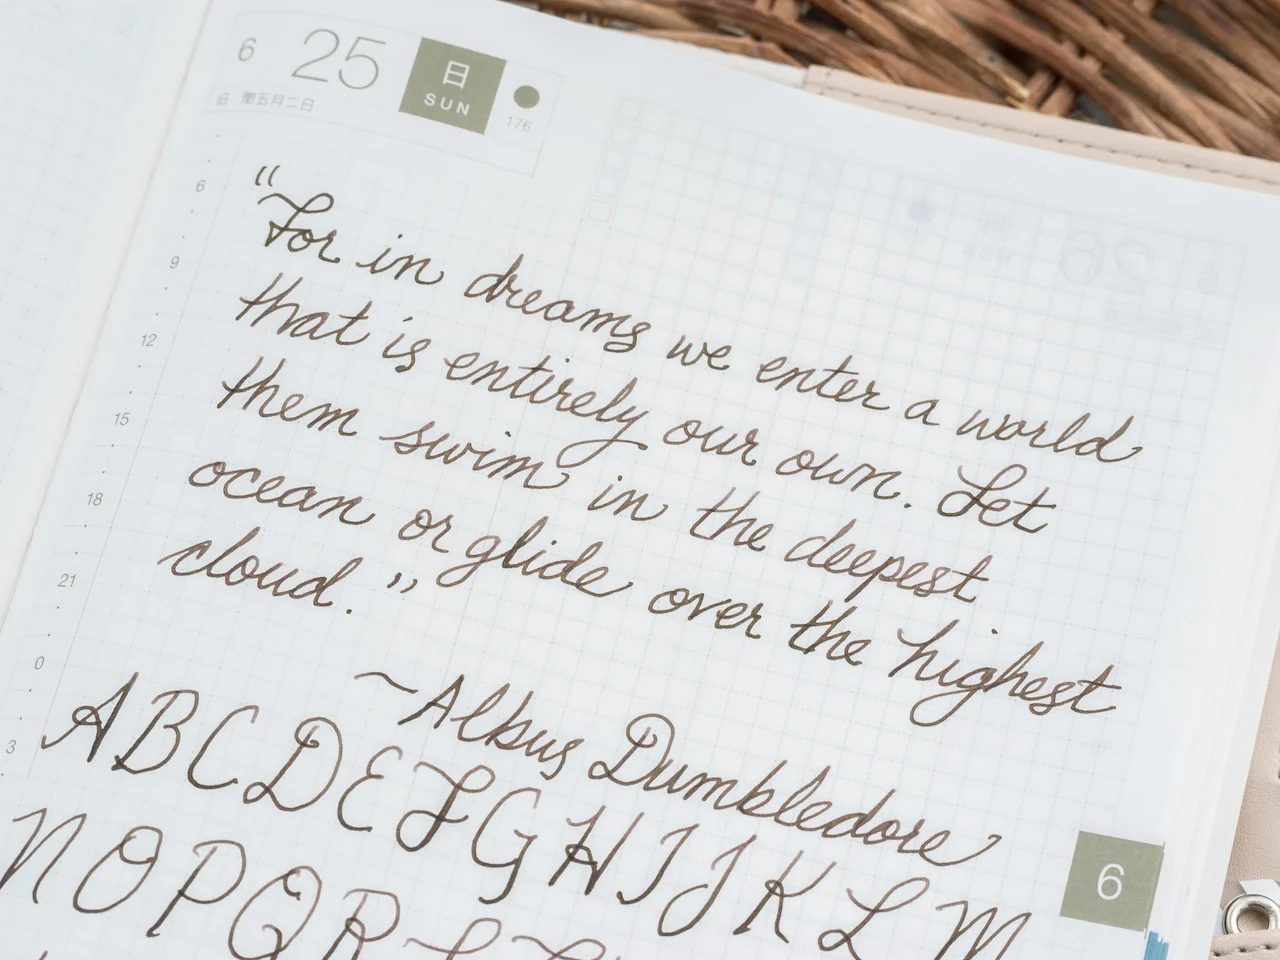 6 25 日 SUN
176
閏五月二日
6
9
12
15
18
21
0
3
“For in dreams we enter a world
that is entirely our own. Let
them swim in the deepest
ocean or glide over the highest
cloud.”
~Albus Dumbledore
A B C D E F G H I J K L M
N O P Q R S T
6